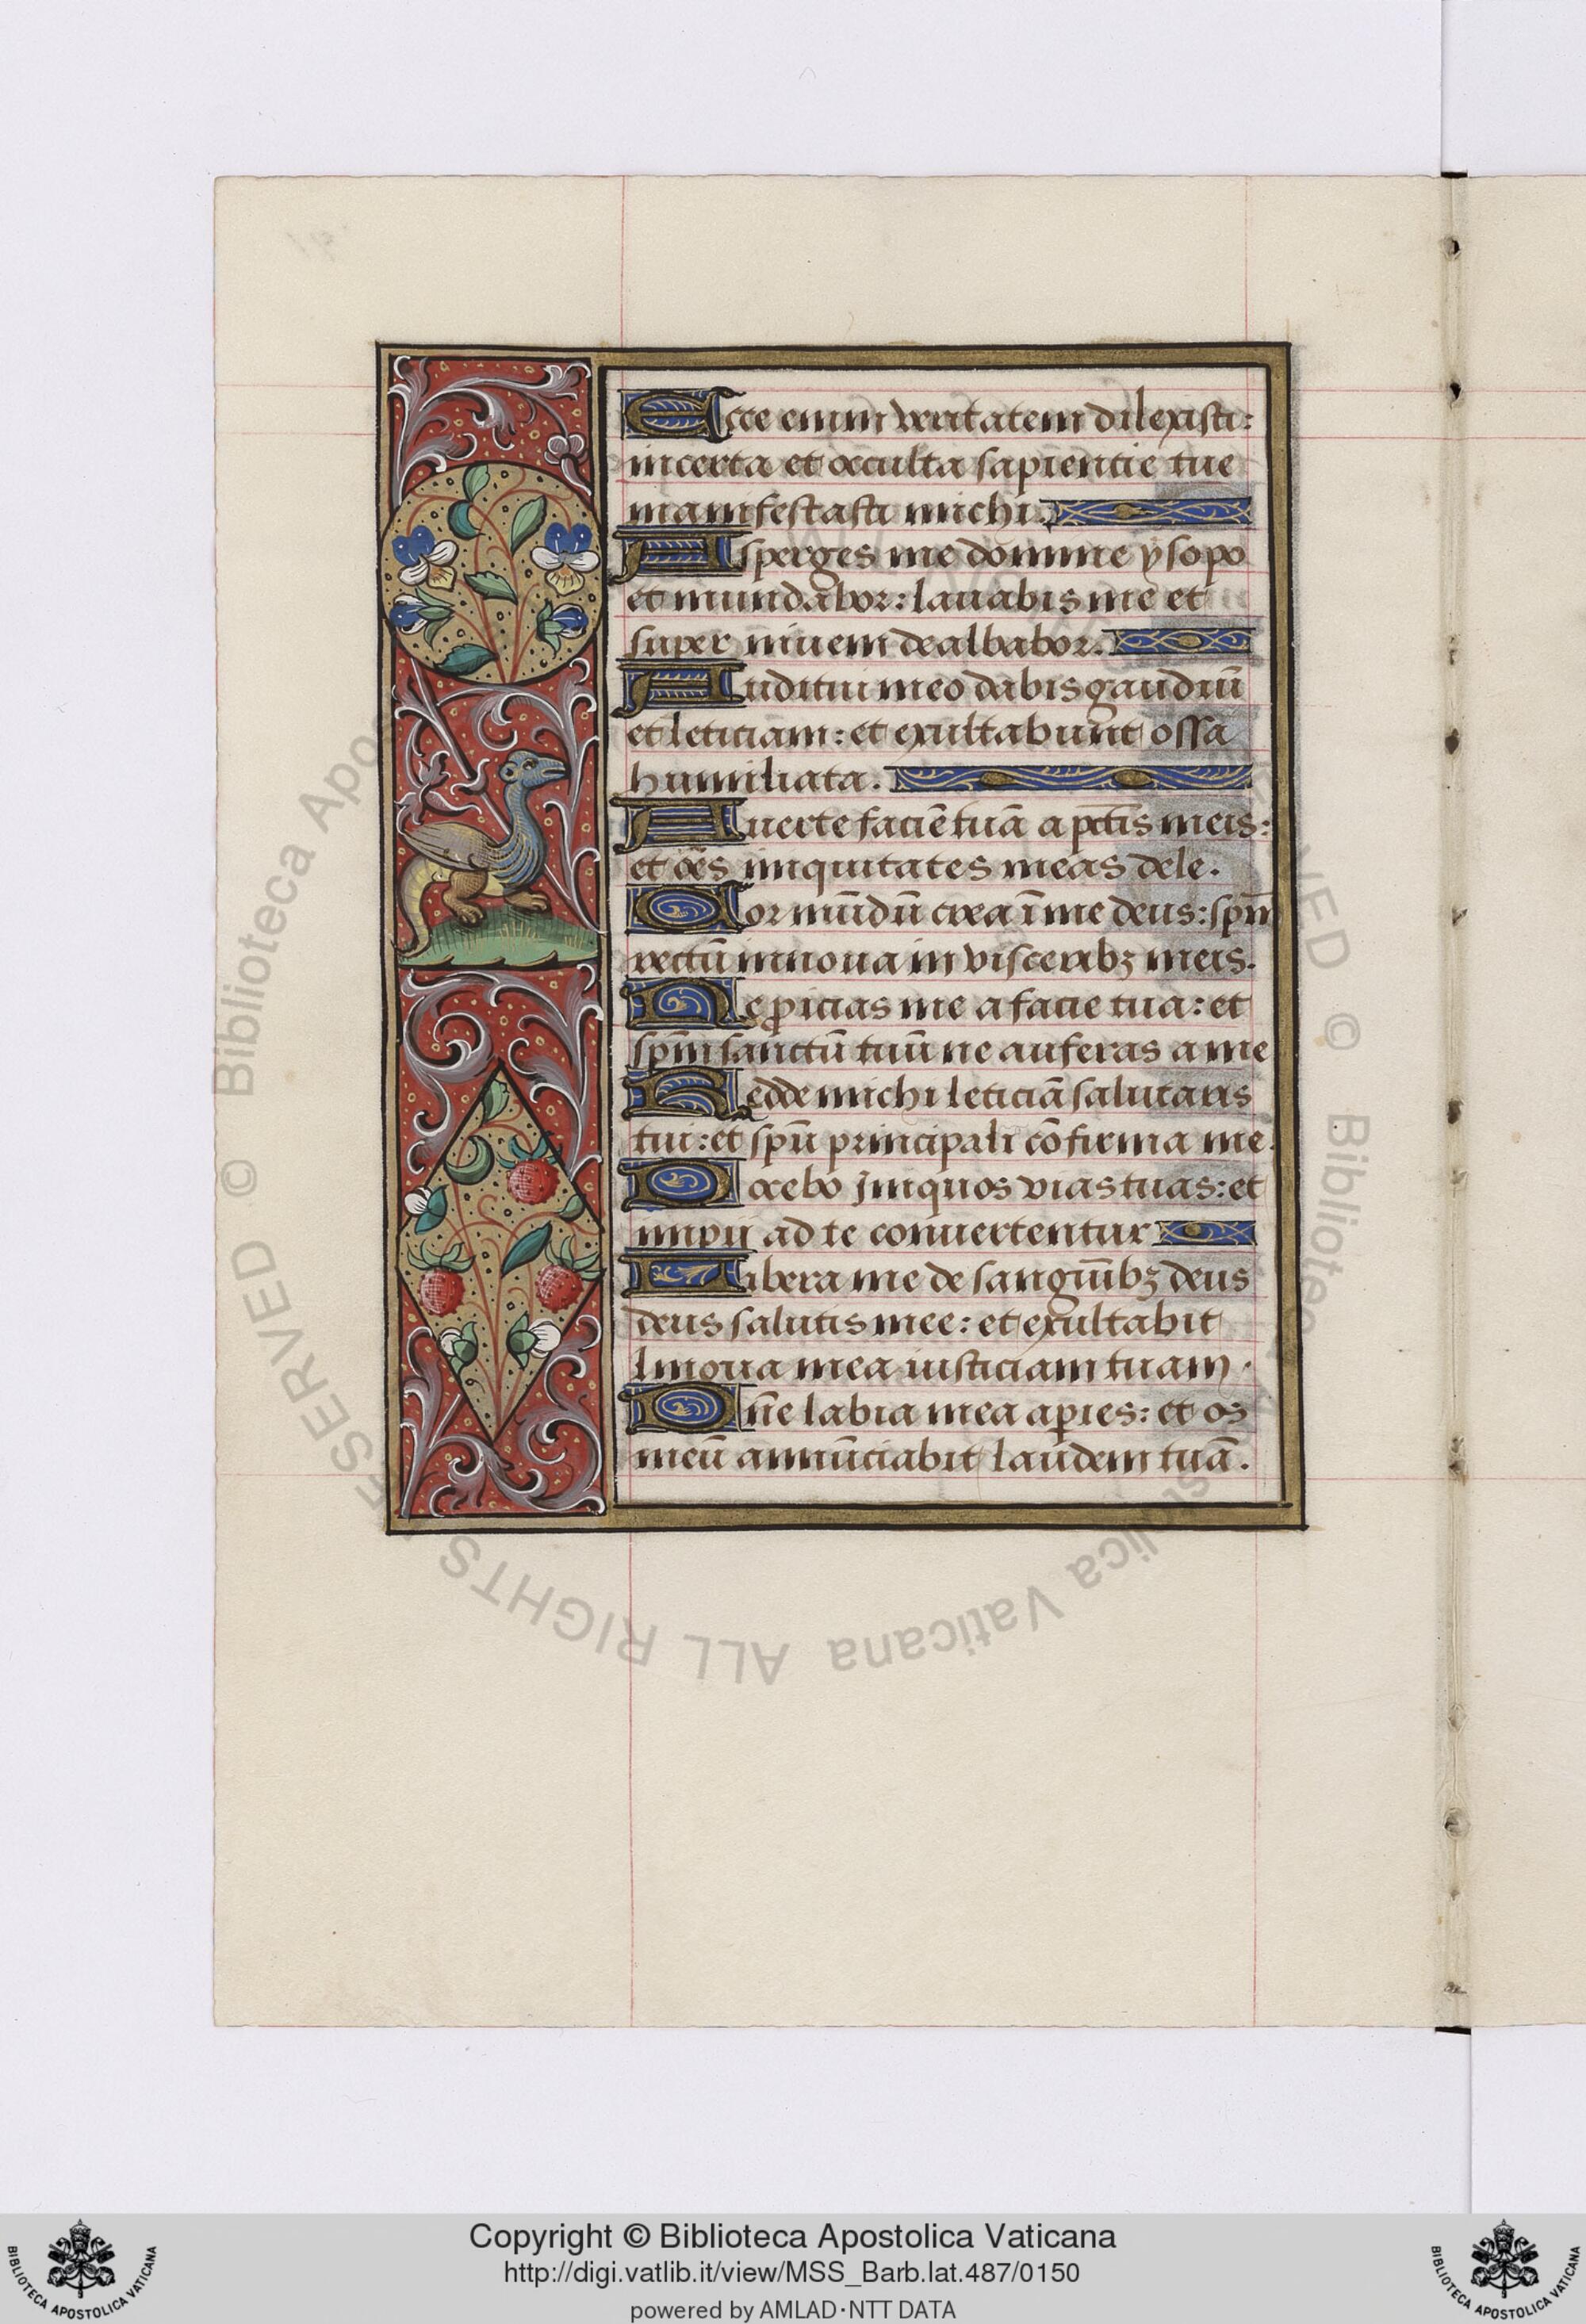 Ecce enim veritatem dilexisti:
incerta et occulta sapientie tue
manifestasti michi.
Asperges me domine ysopo
et mundabor: lauabis me et
super niuem dealbabor.
Auditui meo dabis gaudiū
et leticiam: et exultabunt ossa
humiliata.
Auerte faciē tuā a pctis meis:
et oēs iniquitates meas dele.
Cor mūdū crea ī me deus: spm̄
rectū innoua in visceribꝫ meis.
Ne ꝓicias me a facie tua: et
spm̄ sanctū tuū ne auferas a me
Redde michi leticiā salutaris
tui: et spū principali cōfirma me.
Docebo iniquos vias tuas: et
impii ad te conuertentur
Libera me de sanguībꝫ deus
deus salutis mee: et exultabit
lingua mea iusticiam tuam.
Dn̄e labia mea aꝑies: et os
meū annūciabit laudem tuā.
© Biblioteca Apostolica Vaticana ALL RIGHTS RESERVED
Copyright © Biblioteca Apostolica Vaticana
http://digi.vatlib.it/view/MSS_Barb.lat.487/0150
powered by AMLAD·NTT DATA
BIBLIOTECA APOSTOLICA VATICANA
BIBLIOTECA APOSTOLICA VATICANA